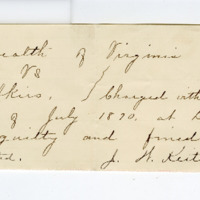 ealth of Virginia
Vs
fkins. } Charged with
of July 1890, at
guilty and fined
ed. J. H. Kest